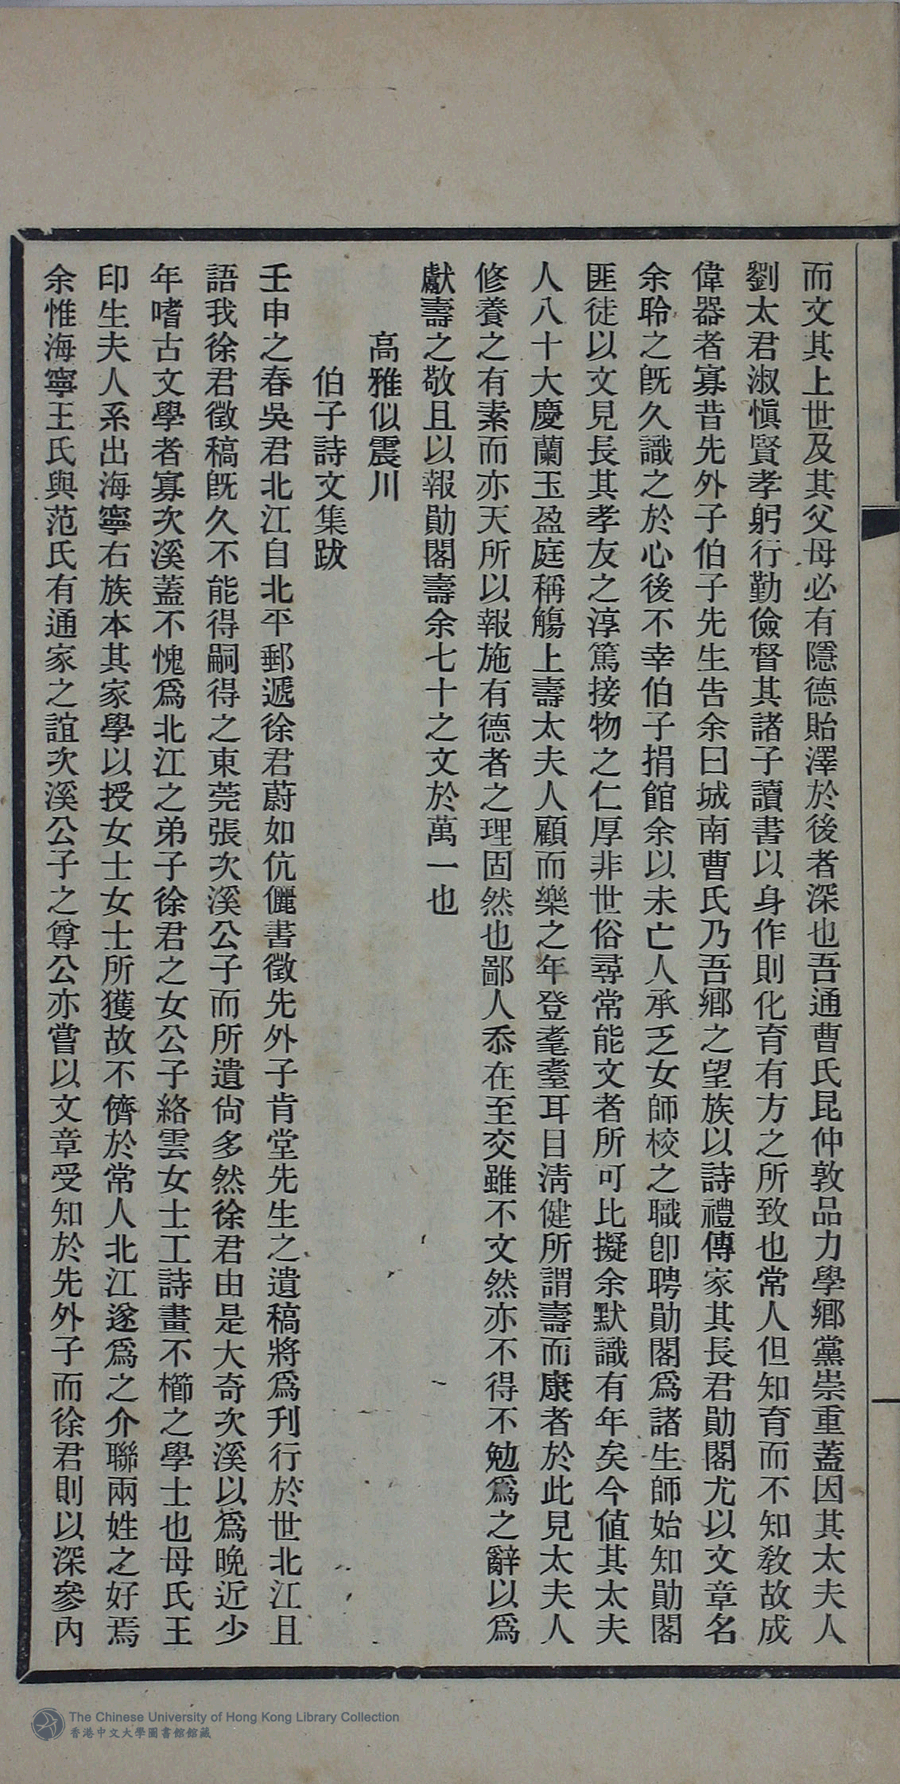 而文其上世及其父母必有隱德貽澤於後者深也吾通曹氏昆仲敦品力學鄉黨崇重蓋因其太夫人
劉太君淑愼賢孝躬行勤儉督其諸子讀書以身作則化育有方之所致也常人但知育而不知敎故成
偉器者寡昔先外子伯子先生告余曰城南曹氏乃吾鄉之望族以詩禮傳家其長君勛閣尤以文章名
余聆之旣久識之於心後不幸伯子捐館余以未亡人承乏女師校之職卽聘勛閣爲諸生師始知勛閣
匪徒以文見長其孝友之淳篤接物之仁厚非世俗尋常能文者所可比擬余默識有年矣今値其太夫
人八十大慶蘭玉盈庭稱觴上壽太夫人顧而樂之年登耄耋耳目淸健所謂壽而康者於此見太夫人
修養之有素而亦天所以報施有德者之理固然也鄙人忝在至交雖不文然亦不得不勉爲之辭以爲
獻壽之敬且以報勛閣壽余七十之文於萬一也
高雅似震川
伯子詩文集跋
壬申之春吳君北江自北平郵遞徐君蔚如伉儷書徵先外子肯堂先生之遺稿將爲刊行於世北江且
語我徐君徵稿旣久不能得嗣得之東莞張次溪公子而所遺尙多然徐君由是大奇次溪以爲晩近少
年嗜古文學者寡次溪蓋不愧爲北江之弟子徐君之女公子絡雲女士工詩畫不櫛之學士也母氏王
印生夫人系出海寧右族本其家學以授女士女士所獲故不儕於常人北江遂爲之介聯兩姓之好焉
余惟海寧王氏與范氏有通家之誼次溪公子之尊公亦嘗以文章受知於先外子而徐君則以深參內
The Chinese University of Hong Kong Library Collection
香港中文大學圖書館館藏